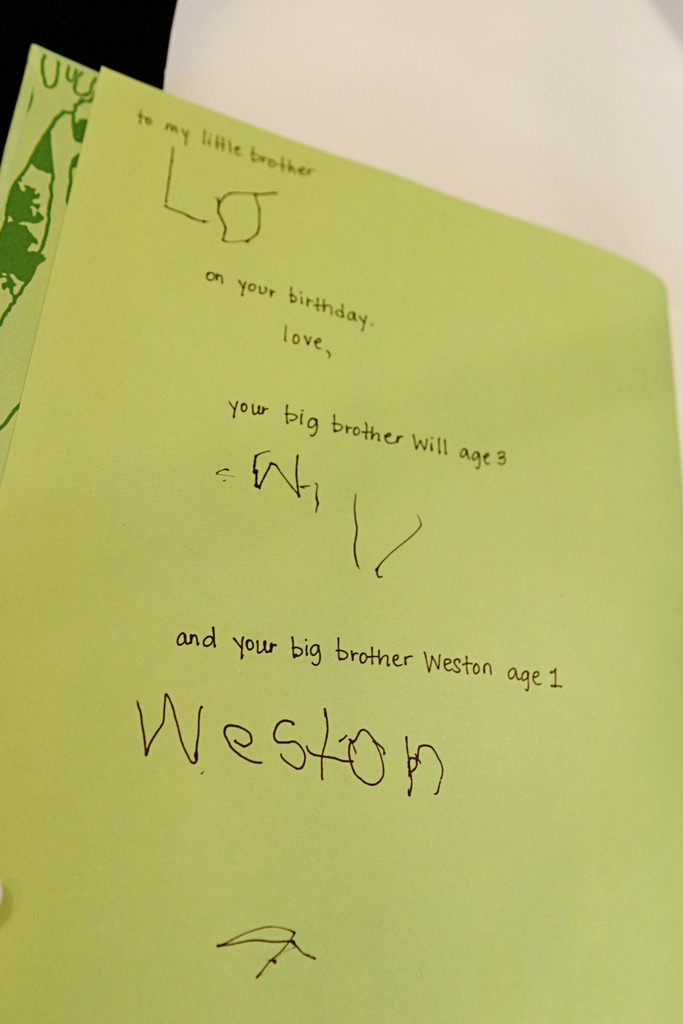 to my little brother
LO
on your birthday.
love,
your big brother Will age 3
and your big brother Weston age 1
Weston